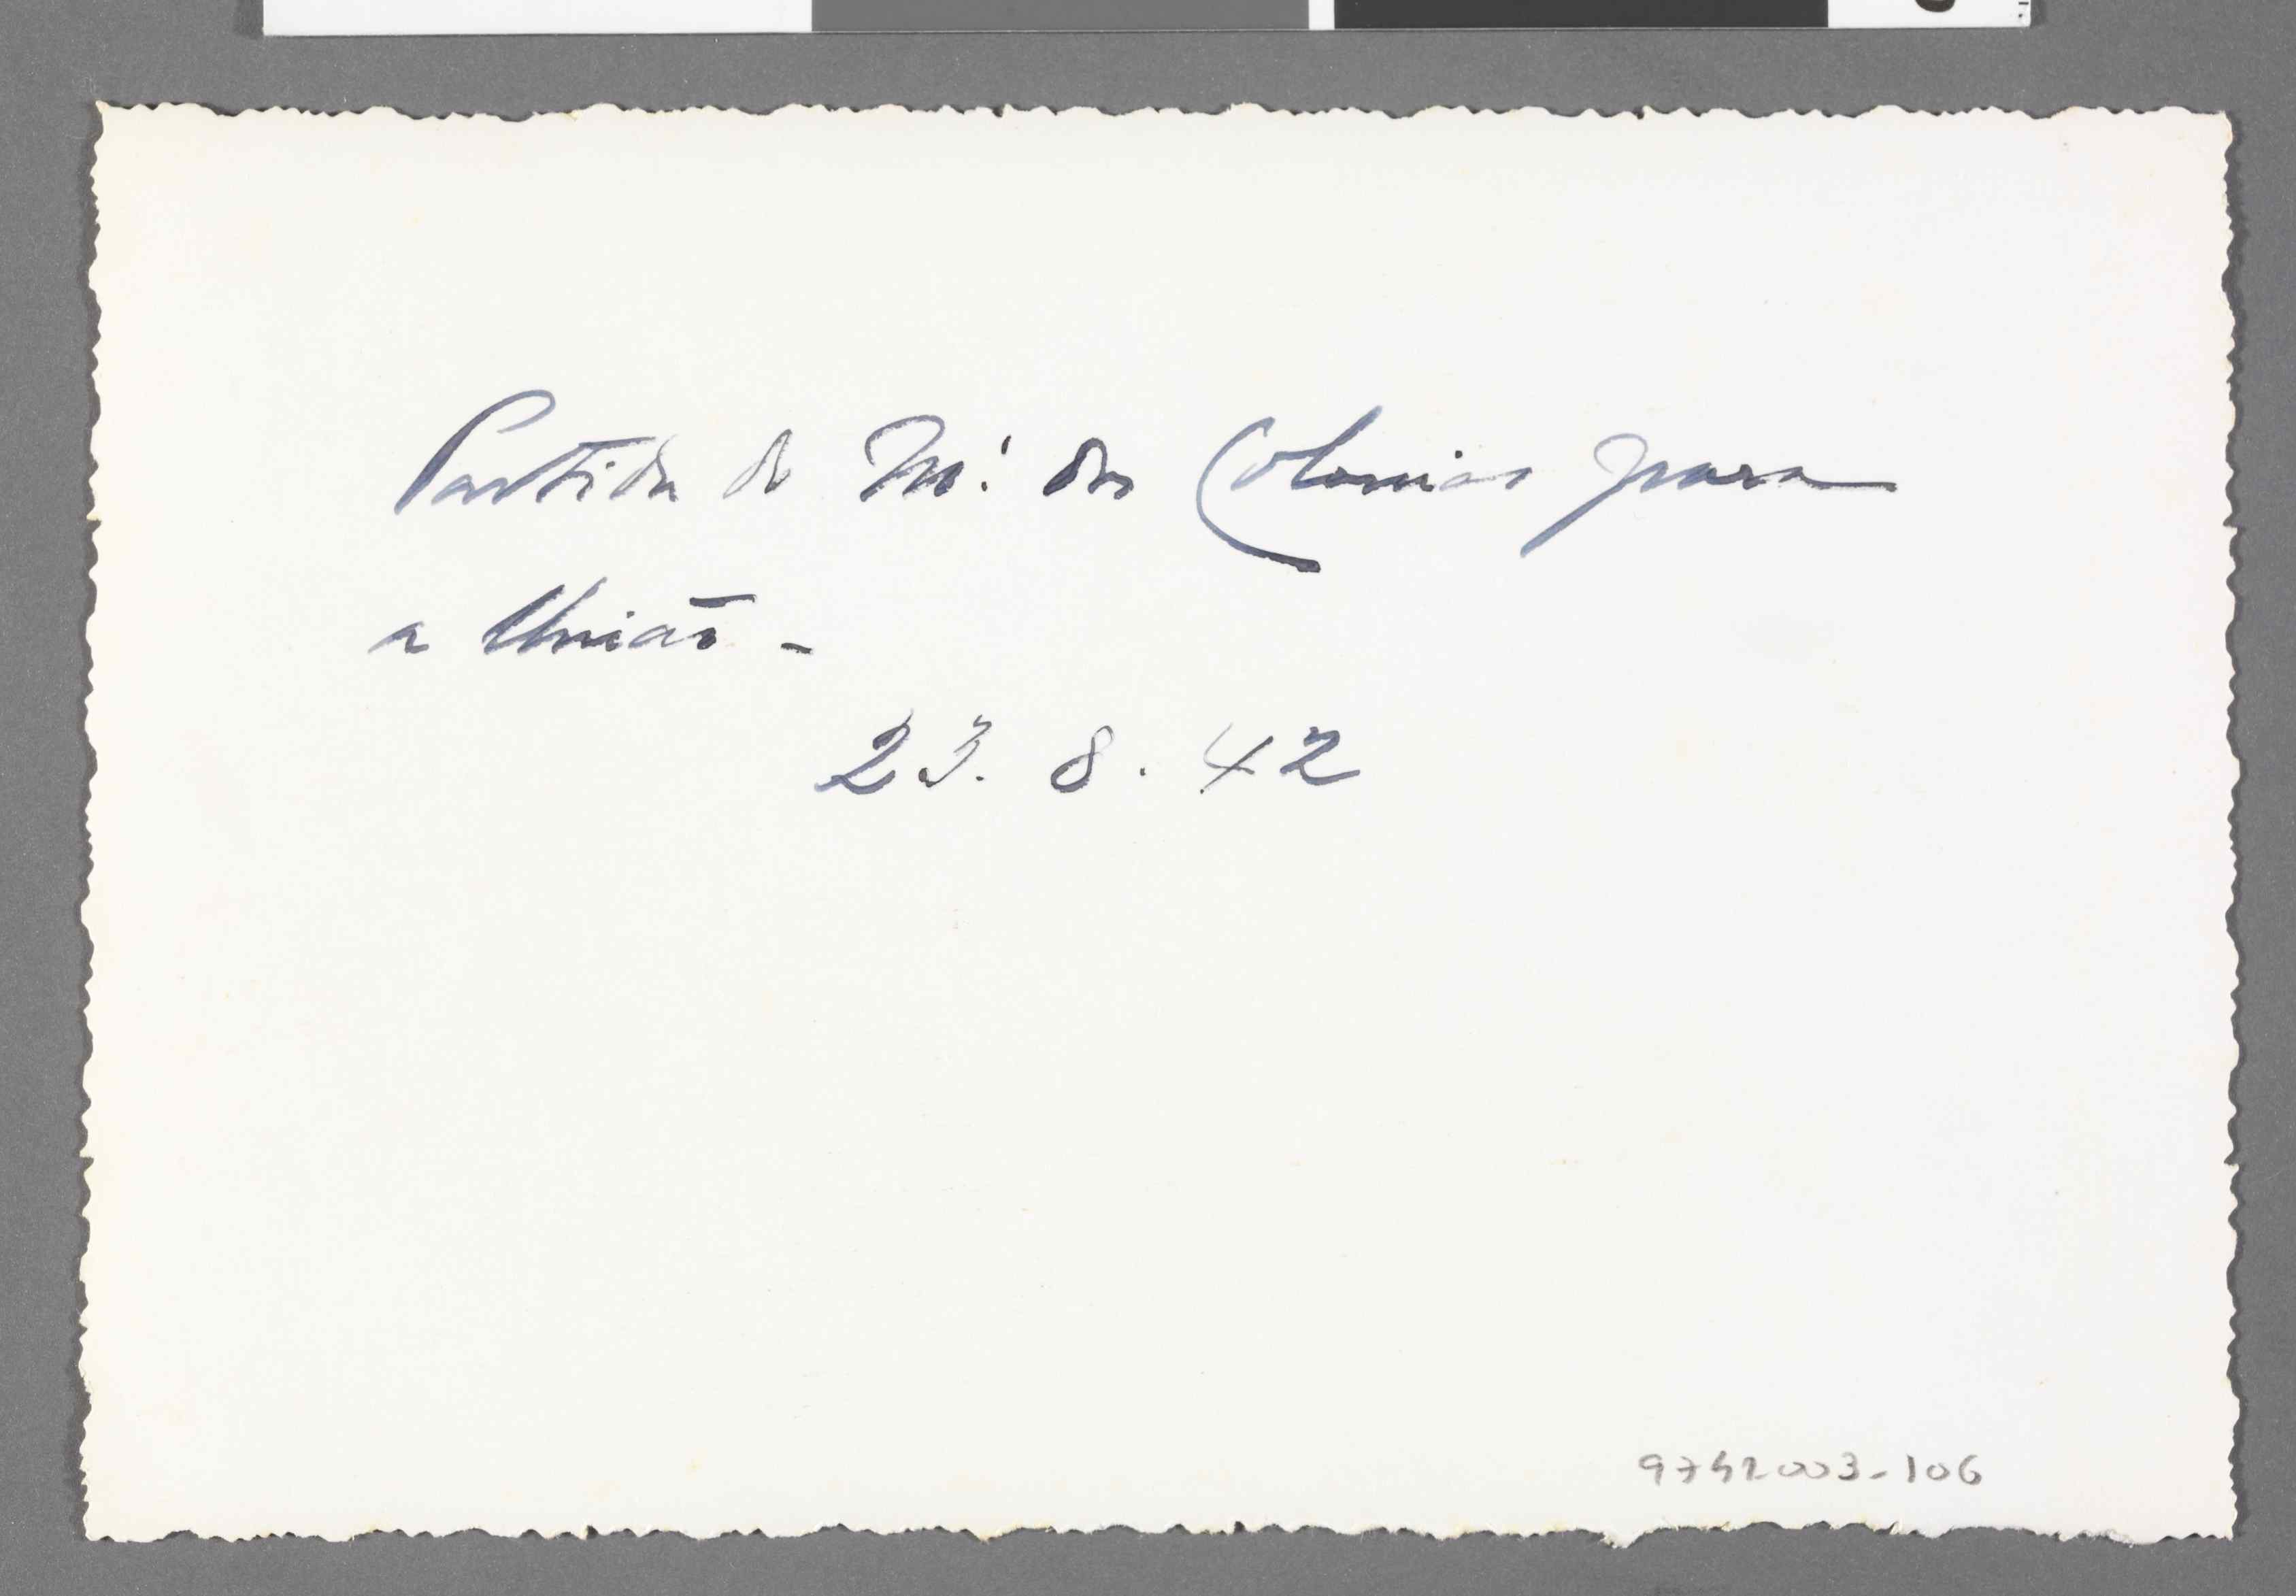 Partida do M.' das Colonias para
a União -
23. 8. 42
9742003-106